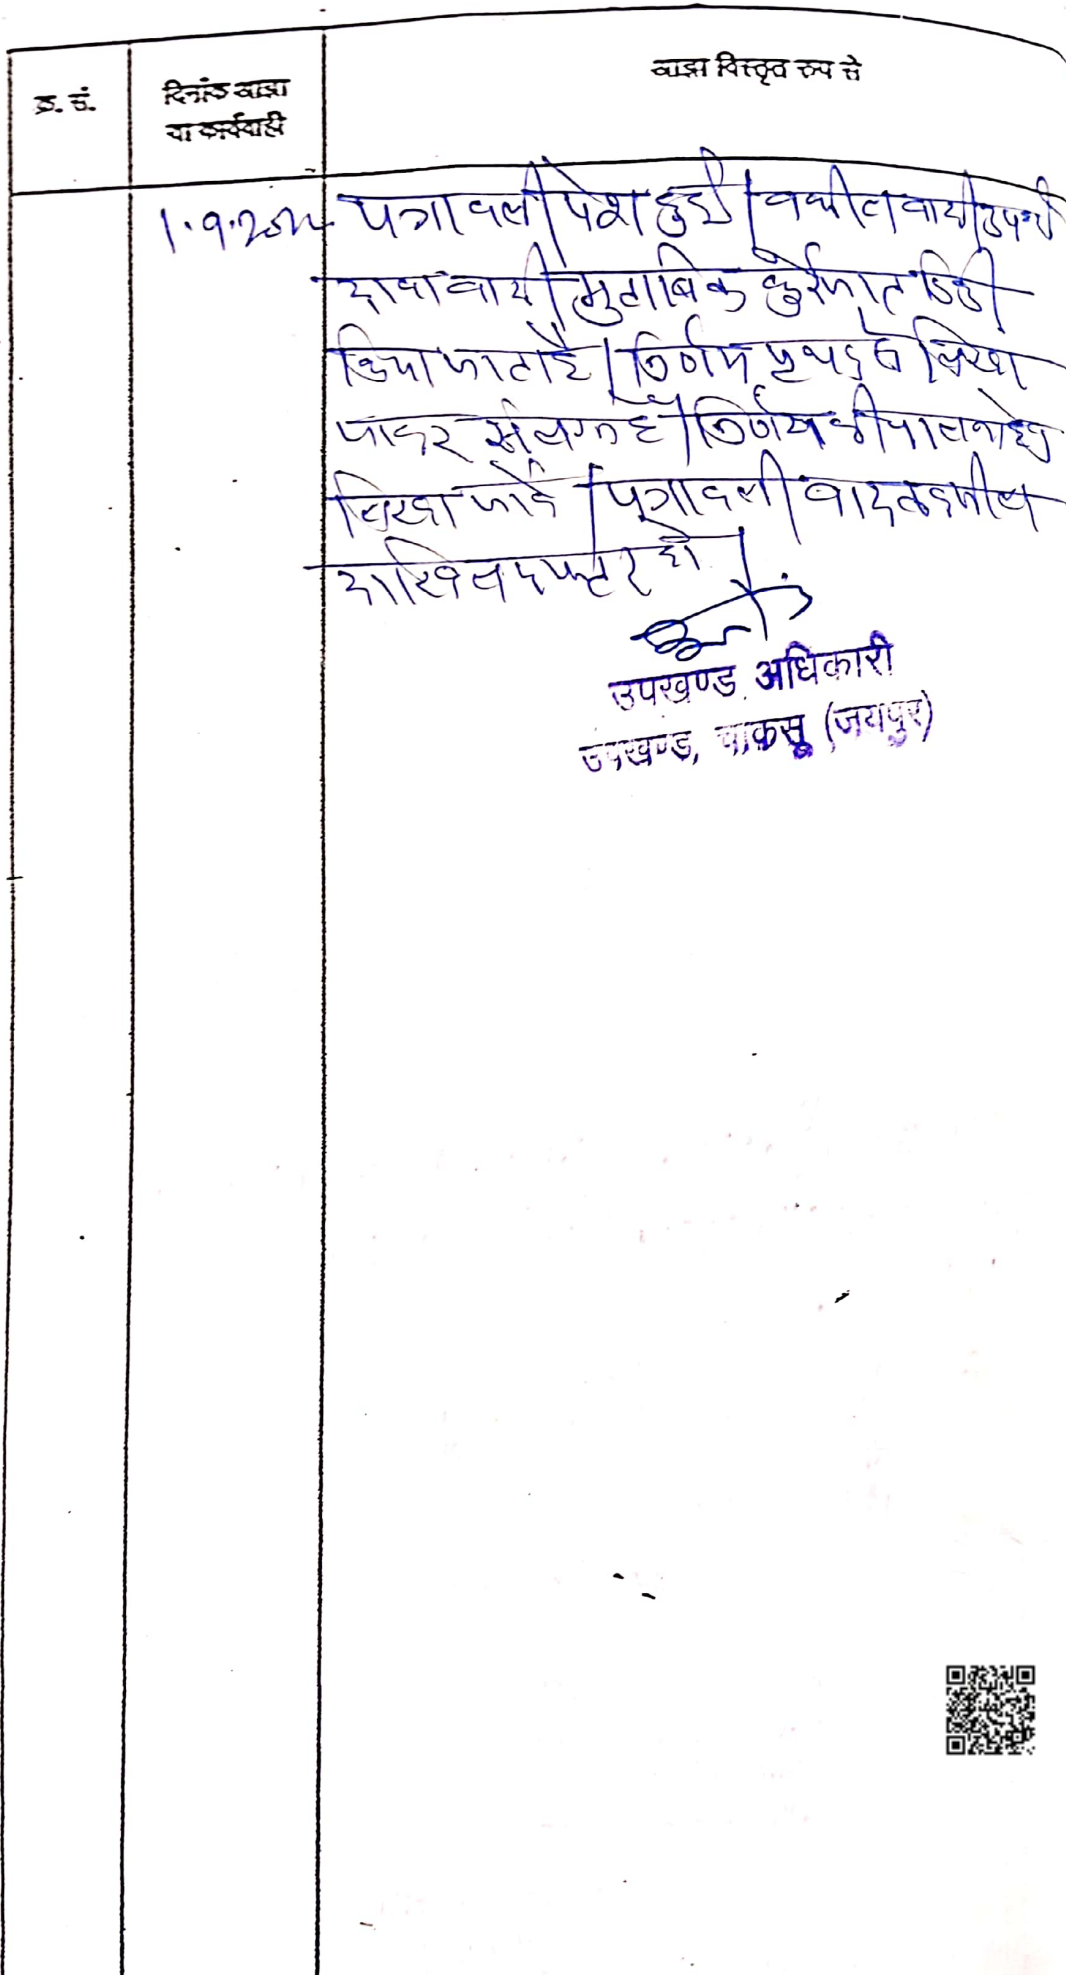 क्र. सं.
दिनांक आज्ञा
या कार्यवाही
आज्ञा विस्तृत रूप से
1.9.20 पत्रावली पेश हुई। वकील वादी उप.
दावा वादी मुताबिक कुर्रेजात डिक्री
किया जाता है। निर्णय पृथक से लिखा
जाकर संलग्न है। निर्णय की पालना हेतु
लिखा जावे। पत्रावली बाद तकमील
दाखिल दफ्तर हो।
उपखण्ड अधिकारी
उपखण्ड, चाकसू (जयपुर)